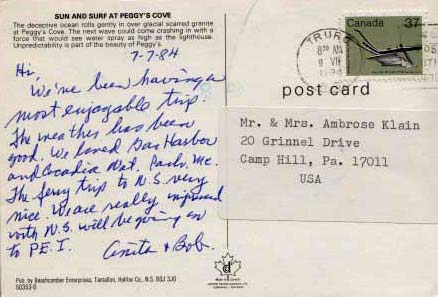 SUN AND SURF AT PEGGY'S COVE
The deceptive ocean rolls gently in over glacial scarred granite
at Peggy's Cove. The next wave could come crashing in with a
force that would see water spray as high as the lighthouse.
Unpredictability is part of the beauty of Peggy's.
7-7-84
Hi,
We've been having a
most enjoyable trip.
The weather has been
good. We loved Bar Harbor
and Acadia Nat. Park, Me.
The ferry trip to N.S. very
nice. We are really impressed
with N.S. will be going on
to P.E.I.
Anita & Bob.
Pub. by Beachcomber Enterprises, Tantallon, Halifax Co., N.S. B0J 3J0
50353-D
Canada 37
TRURO
9 VII
1984
post card
Mr. & Mrs. Ambrose Klain
20 Grinnel Drive
Camp Hill, Pa. 17011
USA